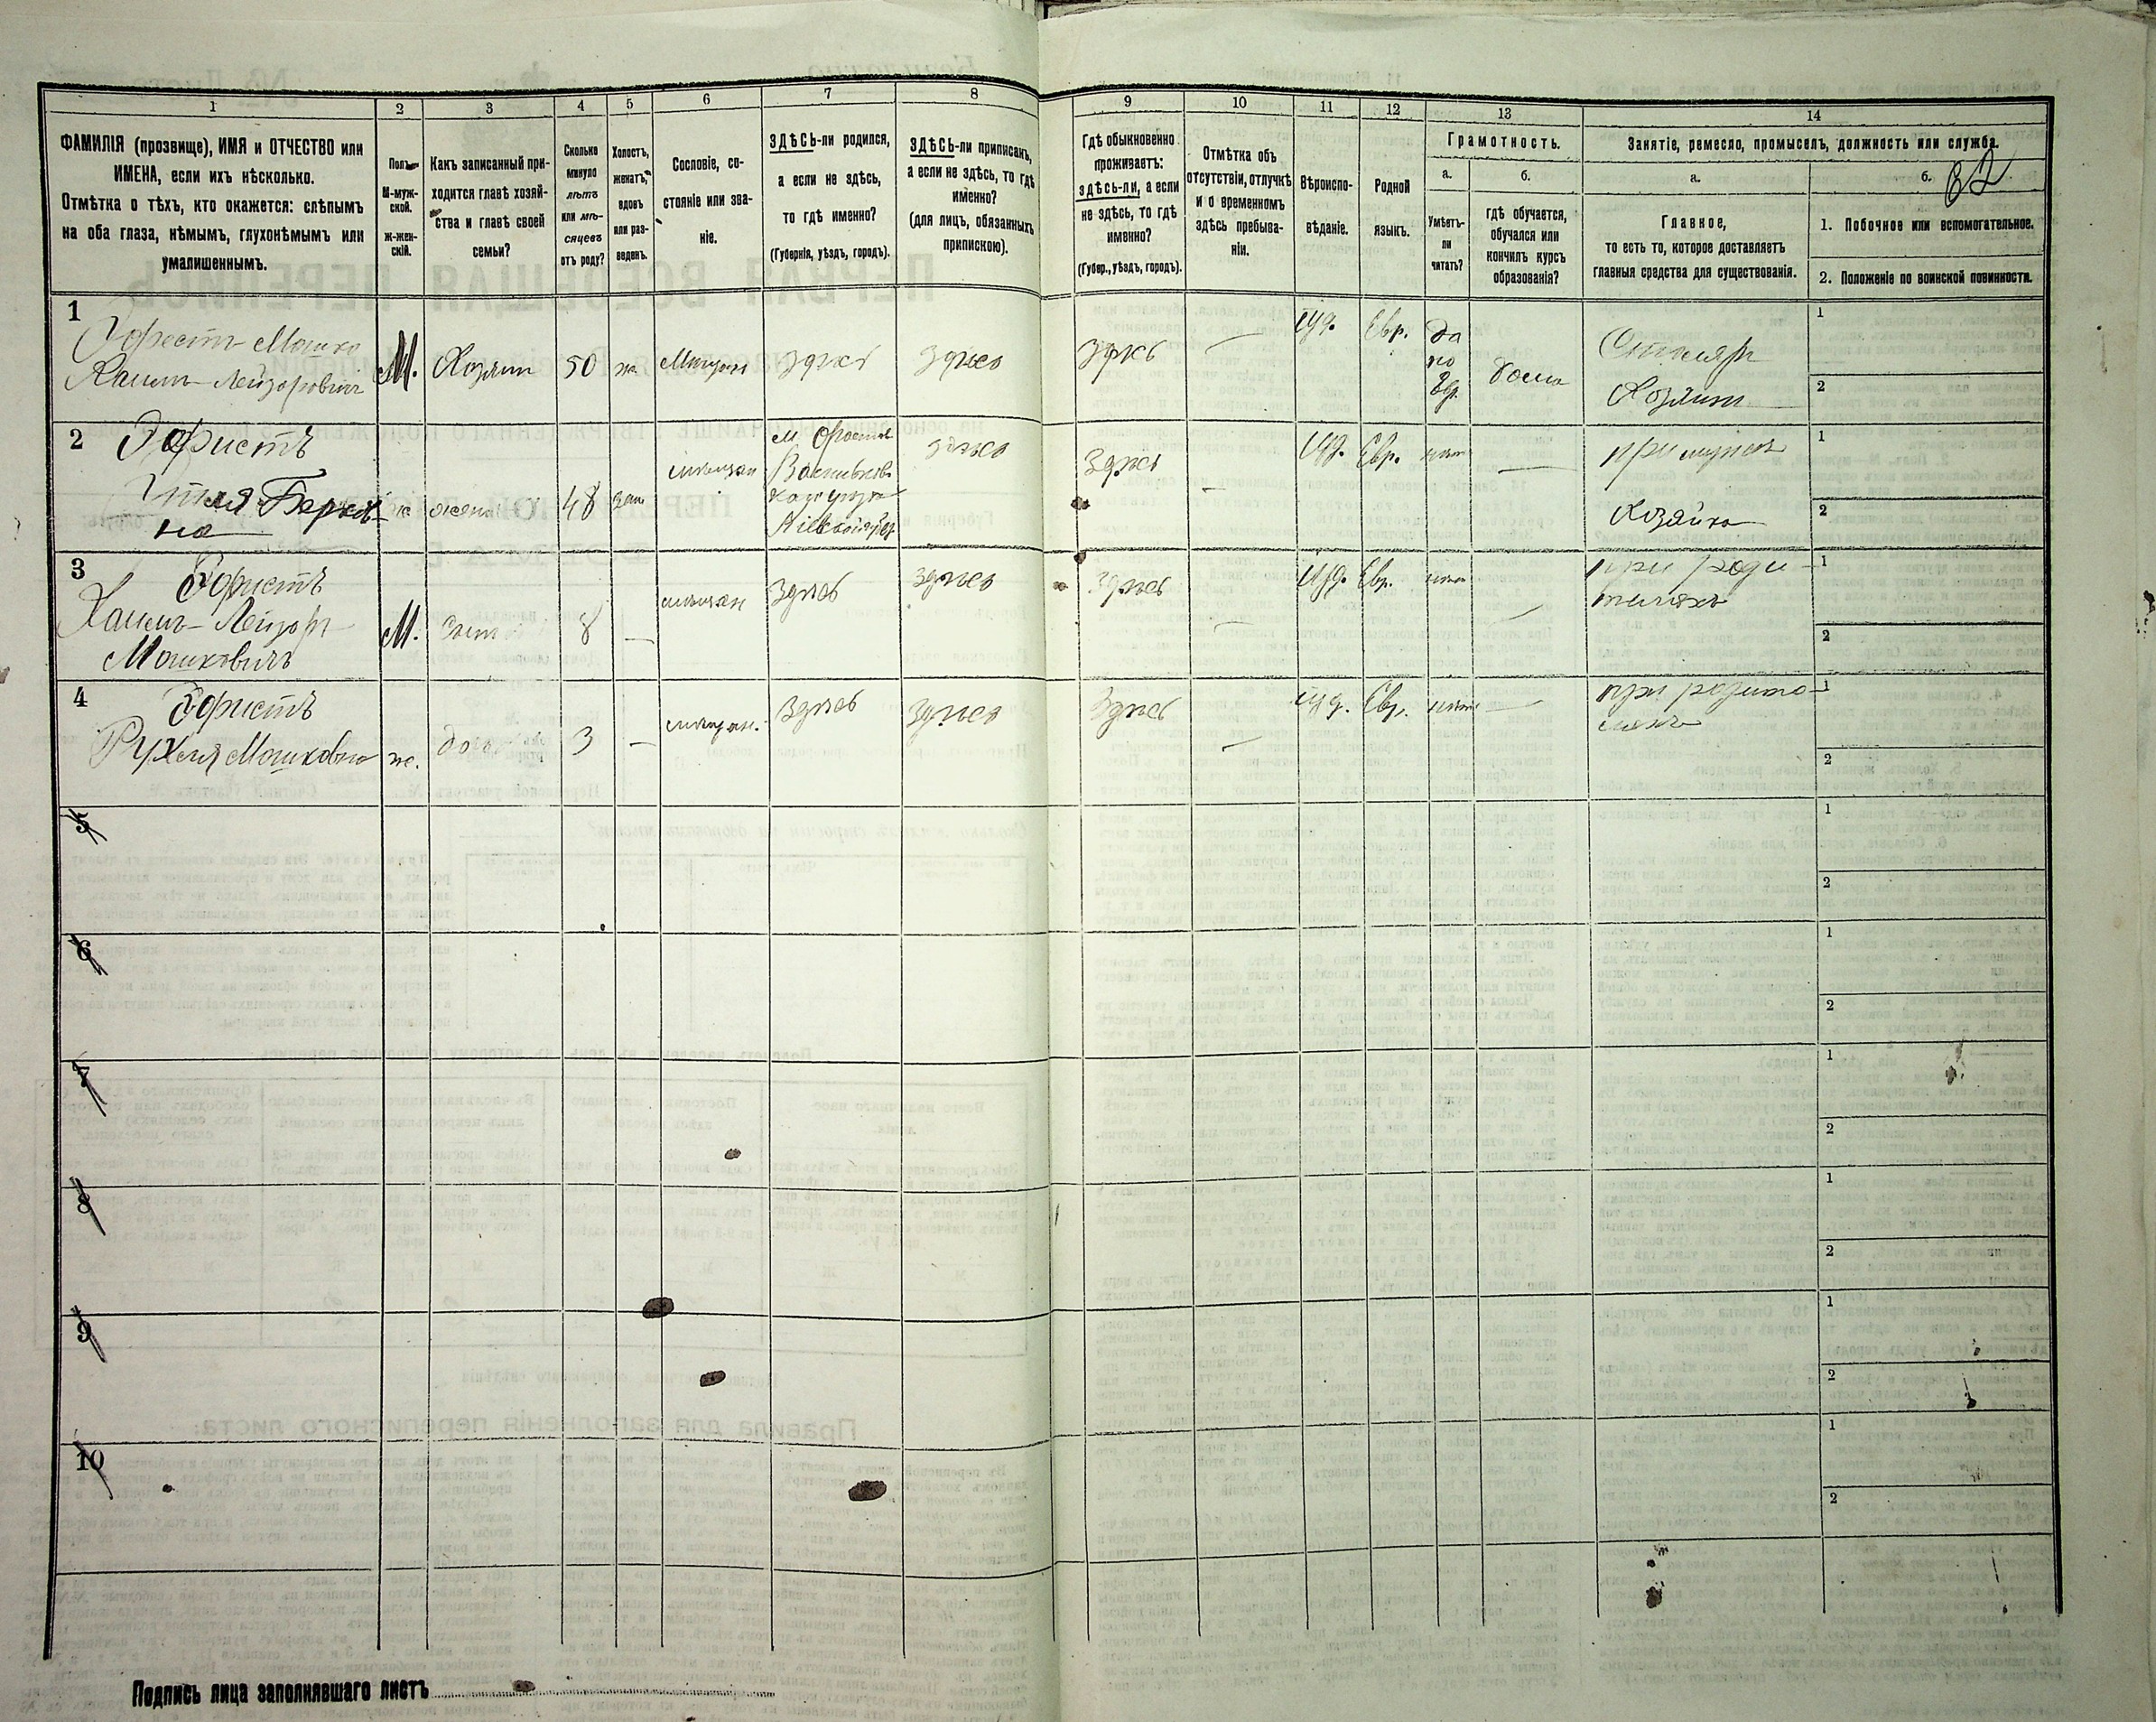 1 2 3 4 5 6 7 8 9 10 11 12 13 14
ФАМИЛІЯ (прозвище), ИМЯ и ОТЧЕСТВО или
ИМЕНА, если ихъ нѣсколько.
Отмѣтка о тѣхъ, кто окажется: слѣпымъ
на оба глаза, нѣмымъ, глухонѣмымъ или
умалишеннымъ.
Полъ
М-муж-
ской.
ж-жен-
скій.
Какъ записанный при-
ходится главѣ хозяй-
ства и главѣ своей
семьи?
Сколько
минуло
лѣтъ
или мѣ-
сяцевъ
отъ роду?
Холостъ,
женатъ,
вдовъ
или раз-
веденъ.
Сословіе, со-
стояніе или зва-
ніе.
ЗДѢСЬ-ли родился,
а если не здѣсь,
то гдѣ именно?
(Губернія, уѣздъ, городъ).
ЗДѢСЬ-ли приписанъ,
а если не здѣсь, то гдѣ
именно?
(для лицъ, обязанныхъ
припискою).
Гдѣ обыкновенно
проживаетъ:
здѣсь-ли, а если
не здѣсь, то гдѣ
именно?
(Губер., уѣздъ, городъ).
Отмѣтка объ
отсутствіи, отлучкѣ
и о временномъ
здѣсь пребыва-
ніи.
Вѣроиспо-
вѣданіе.
Родной
языкъ.
Грамотность.
а.
Умѣетъ-
ли
читать?
б.
гдѣ обучается,
обучался или
кончилъ курсъ
образованія?
Занятіе, ремесло, промыселъ, должность или служба.
а.
Главное,
то есть то, которое доставляетъ
главныя средства для существованія.
б.
32
1. Побочное или вспомогательное.
2. Положеніе по воинской повинности.
1
Эфрестъ Мошко
Хаимъ Лейзоровичъ
М.
Хозяинъ
50
ж
Мѣщан
Здѣсь
Здѣсь
Здѣсь
—
Іуд.
Евр.
да
по
Евр.
дома
Столяръ
Хозяинъ
1
2
2
Эфристъ
Берков-
на
ж
жена
48
зам
мѣщан
Васильков-
Кіевской губ.
здѣсь
Здѣсь
—
Іуд.
Евр.
нѣт
—
при мужѣ
Хозяйка
1
2
3
Эфристъ
Хаимъ-Лейзоръ
Мошковичъ
М.
сынъ
8
—
мѣщан
Здѣсь
здѣсь
Здѣсь
—
Іуд.
Евр.
нѣт
—
при роди-
теляхъ
1
2
4
Эфристъ
Рухля Мошковна
ж.
дочь
3
—
мѣщан.
Здѣсь
Здѣсь
Здѣсь
—
Іуд.
Евр.
нѣт
—
при родите-
ляхъ
1
2
5
1
2
6
1
2
7
1
2
8
1
2
9
1
2
10
1
2
Подпись лица заполнявшаго листъ